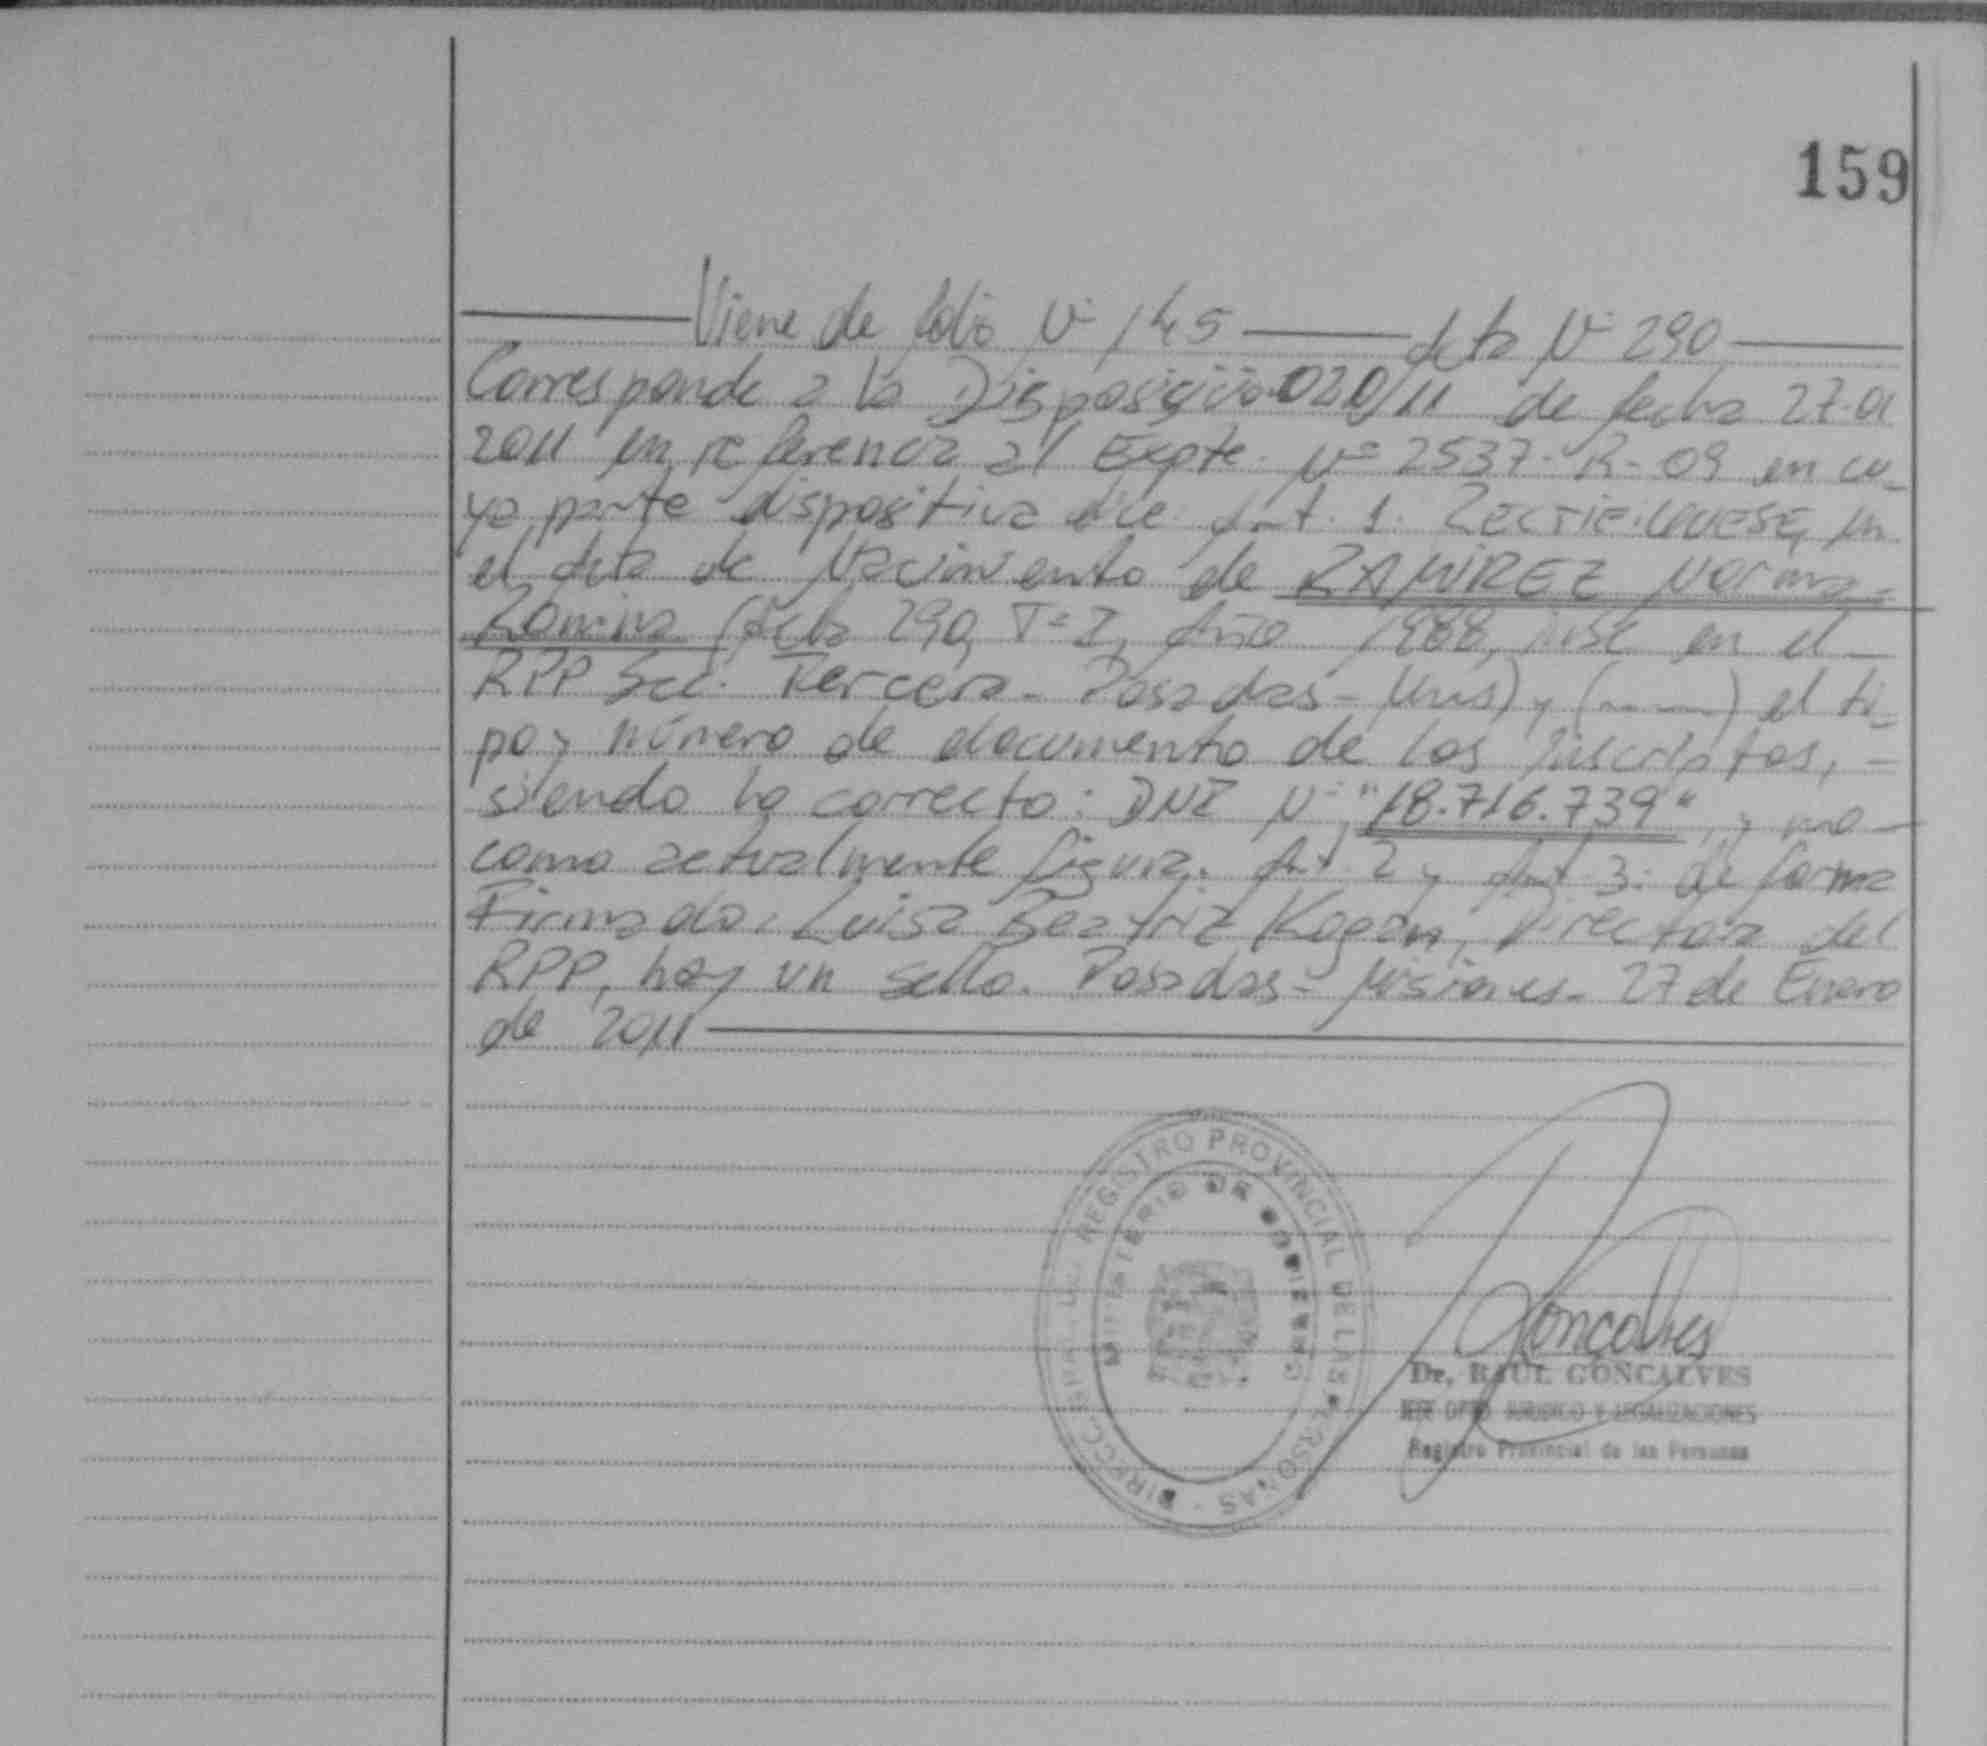 159
Viene de folio Nº 145 — Acta Nº 290
Corresponde a la Disposición 020/11 de fecha 27-01
2011 en referencia al Expte. Nº 2537-R-09 en cu-
ya parte dispositiva dice Art. 1. Rectifíquese, en
el Acta de Nacimiento de RAMIREZ Norma
Romina (Acta 290, Tº 2, Año 1988, Insc en el
RPP Sec. Tercera - Posadas - Mnes) y (------) el ti-
po y número de documento de los inscriptos, -
siendo lo correcto: DNI Nº "18.716.739", y no -
como actualmente figura. Art. 2 y Art. 3: de forma
Firmado: Luisa Beatriz Kogan, Directora del
RPP, hay un sello. Posadas - Misiones - 27 de Enero
de 2011
REGISTRO PROVINCIAL DE LAS PERSONAS
MINISTERIO DE GOBIERNO
Goncalves
Dr. RAUL GONCALVES
JEFE DPTO JURIDICO Y LEGALIZACIONES
Registro Provincial de las Personas